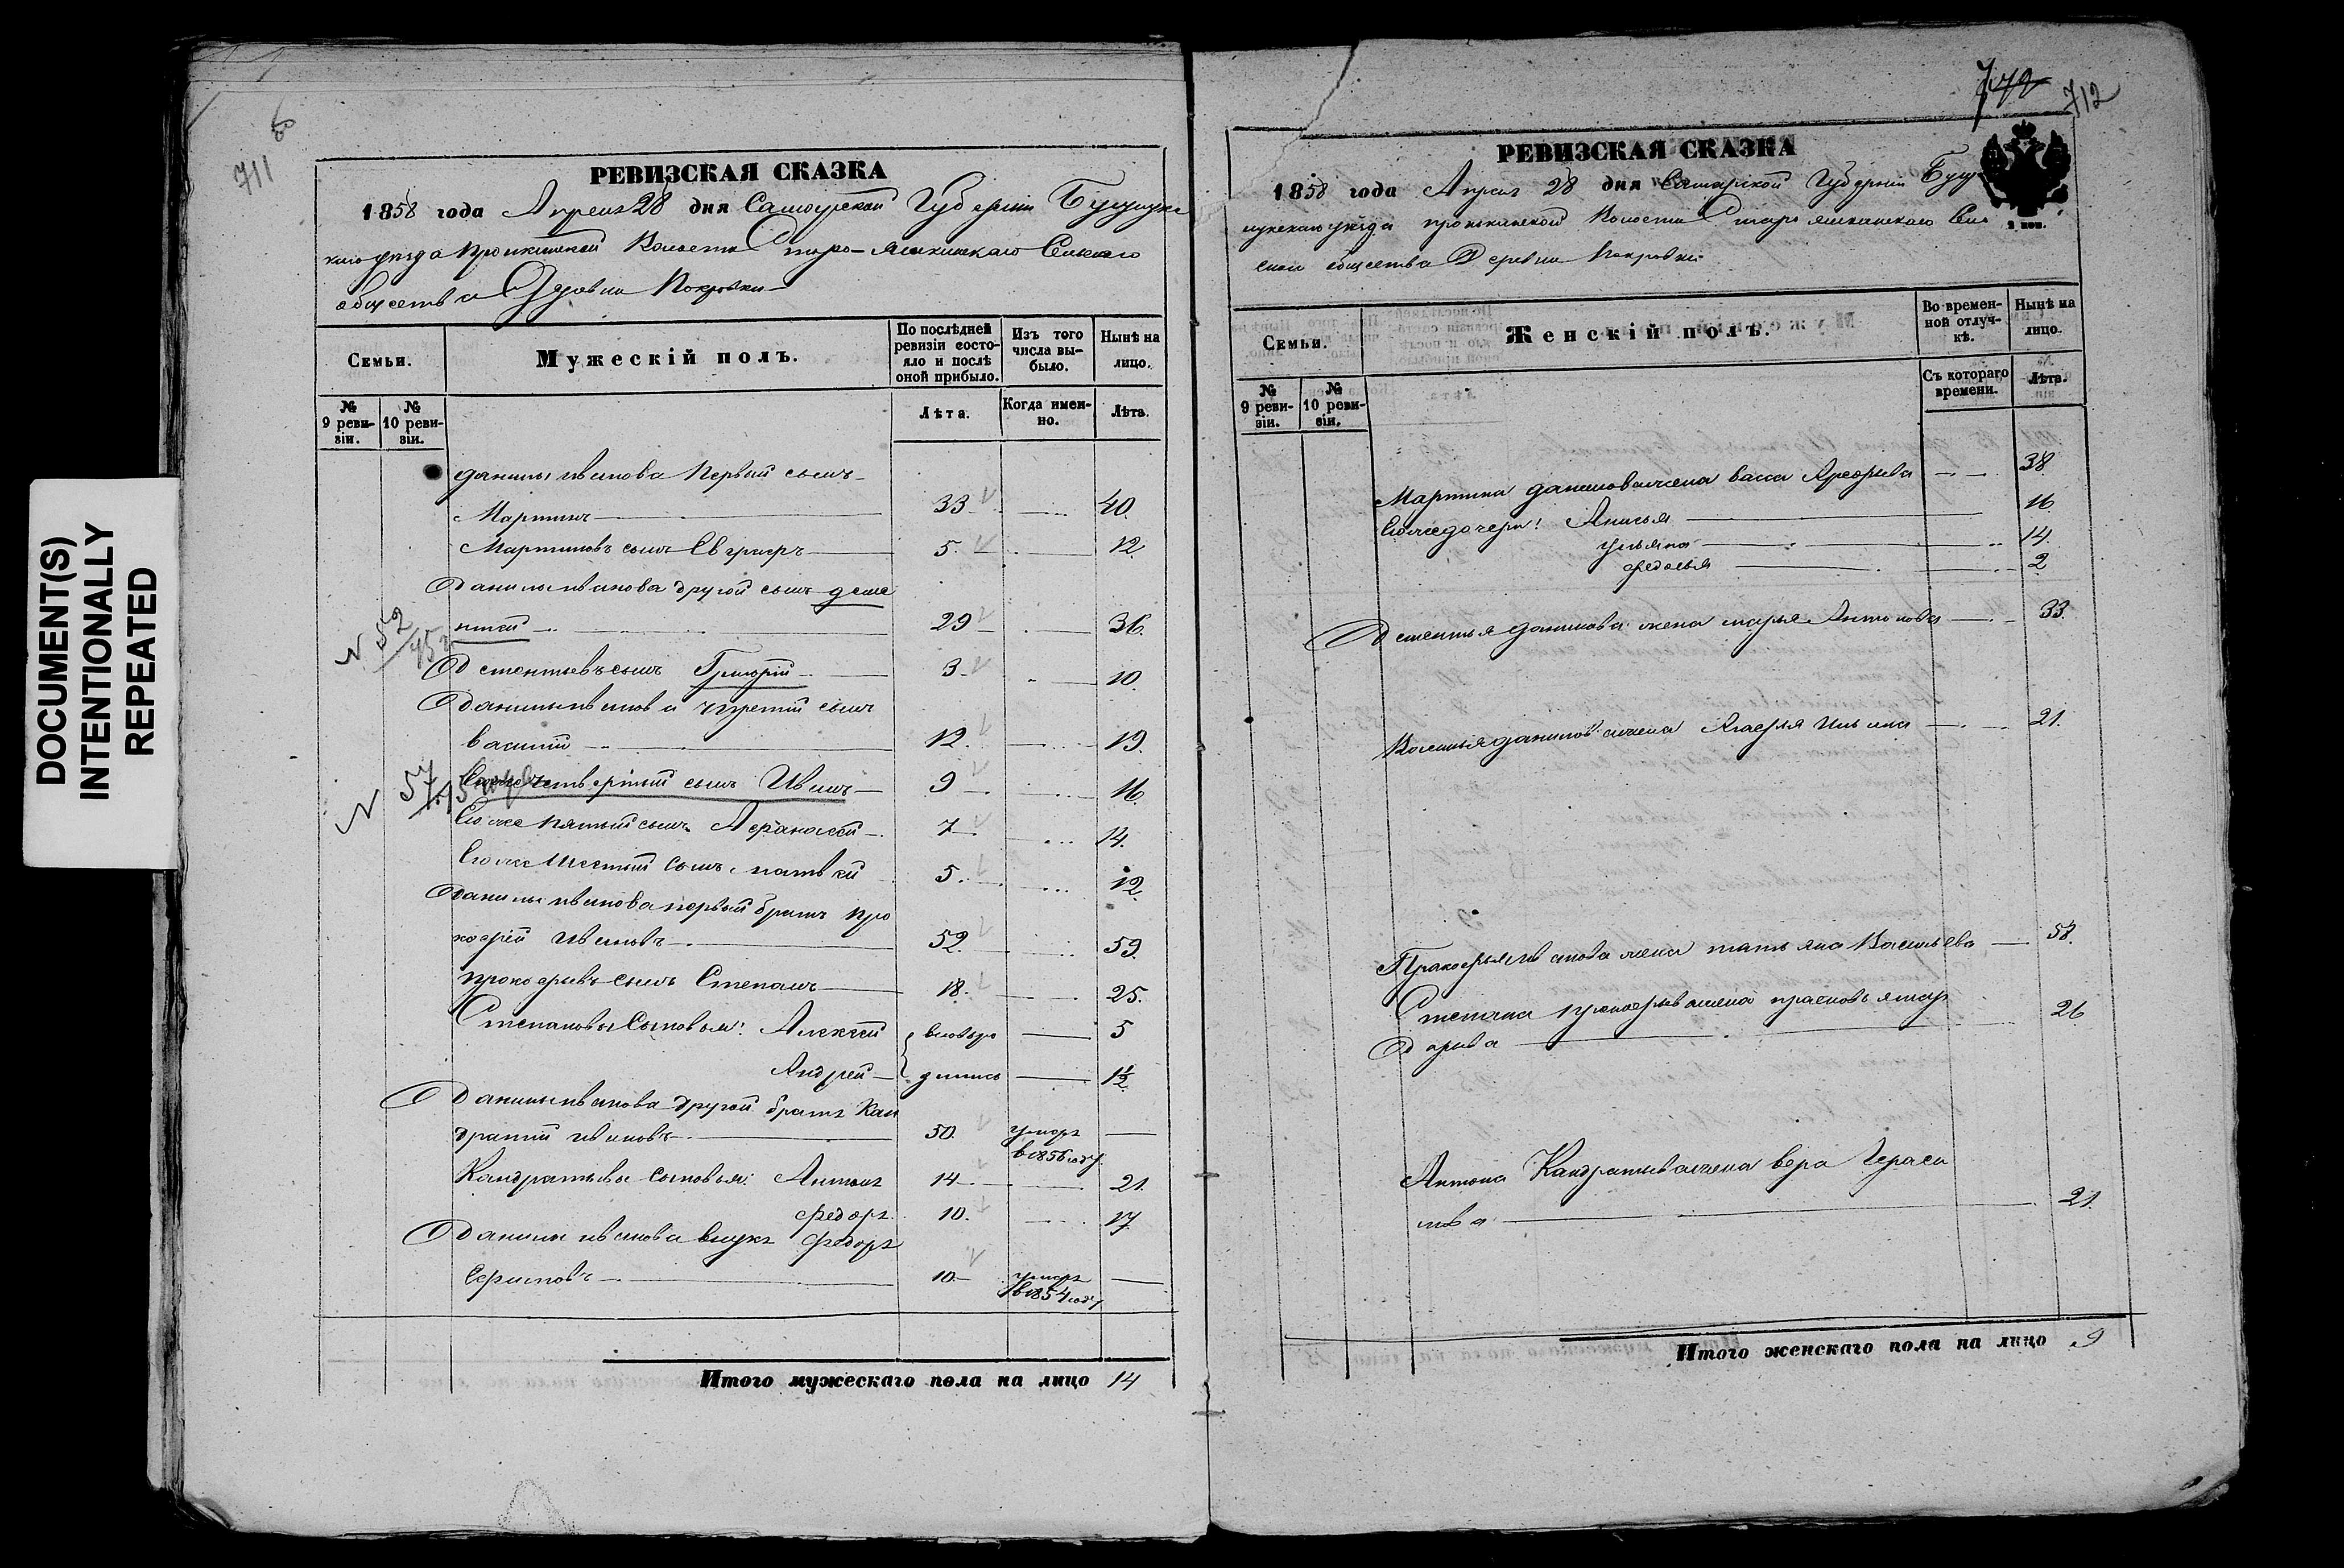 DOCUMENT(S)
INTENTIONALLY
REPEATED
711
РЕВИЗСКАЯ СКАЗКА
1858 года Апреля 28 дня Самарской Губернии Бузулукс
каго уезда Пронькинской Волости Старо-Яшкинскаго Сельскаго
общества Деревни Покровки
Семьи.
Мужескій полъ.
По послѣдней ревизіи состояло и послѣ оной прибыло.
Изъ того числа выбыло.
Нынѣ на лицо.
№ 9 ревизіи.
№ 10 ревизіи.
Лѣта.
Когда именно.
Лѣта.
Данилы Иванова первый сынъ
Мартинъ 33 40.
Мартиновъ сынъ Евграфъ 5. 12.
Данилы Иванова другой сынъ Деме
нтей 29 36.
N 52
Дементьевъ сынъ Григорій 3 10.
Данилы Иванова третій сынъ
Василій 12. 19.
N 57
Егоже четвертый сынъ Иванъ 9 16.
Егоже пятый сынъ Афанасей 7 14.
Егоже шестый сынъ Матвей 5. 12
Данилы Иванова первый братъ Про
кофей Ивановъ 52. 59.
Прокофьевъ сынъ Степанъ 18. 25.
Степановы сыновья: Алексей вновьро 5
Андрей дились 1½
Данилы Иванова другой братъ Кан
дратій Ивановъ 50. умеръ в 1856 году
Кандратьевы сыновья: Антонъ 14 21.
Федоръ 10. 17
Данилы Иванова внукъ Федоръ
Ефимовъ 10. умеръ в 1854 году
Итого мужескаго пола на лицо 14
712
РЕВИЗСКАЯ СКАЗКА
1858 года Апреля 28 дня Самарской Губернии Бузу
лукскаго уезда Пронькинской Волости Старо Яшкинскаго Сель
скаго общества Деревни Покровки
Семьи.
Женскій полъ.
Во временной отлучкѣ.
Нынѣ на лицо.
№ 9 ревизіи.
№ 10 ревизіи.
Съ котораго времени.
Лѣта.
Мартина Данилова жена Васса Арефьева 38
Егоже дочери: Анисья 16
Ульяна 14.
Федосья 2
Дементья Данилова жена Марья Антонова 33.
Василья Данилова жена Агафья Ильина 21.
Пракофья Иванова жена Татьяна Васильева 58.
Степана Прокофьева жена Прасковья
26
Антона Кандратьева жена Вера Гераси
мова 21.
Итого женскаго пола на лицо 9